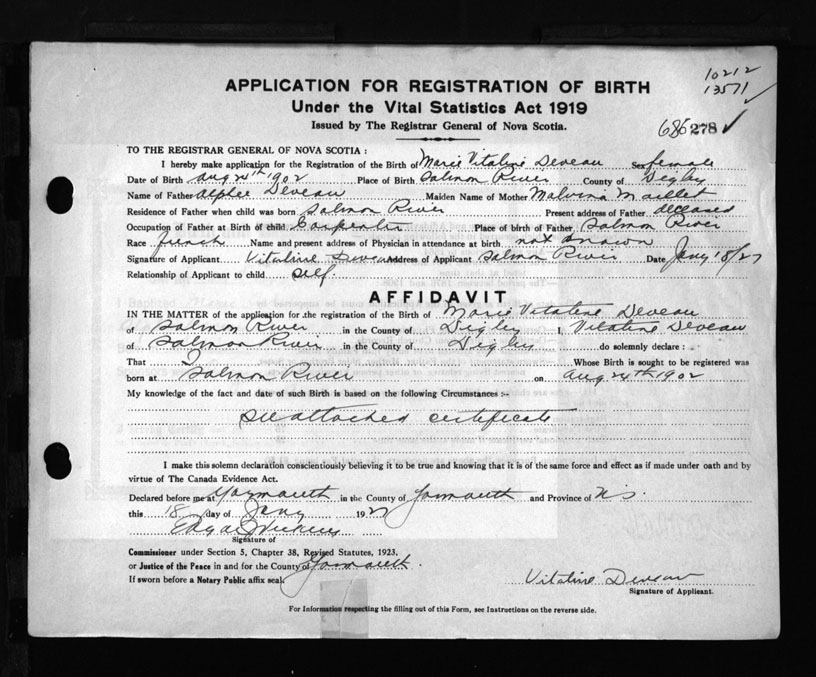 10212
13571
APPLICATION FOR REGISTRATION OF BIRTH
Under the Vital Statistics Act 1919
Issued by The Registrar General of Nova Scotia.
686 278
TO THE REGISTRAR GENERAL OF NOVA SCOTIA:
I hereby make application for the Registration of the Birth of Marie Vitaline Deveau Sex female
Date of Birth Aug 24th 1902 Place of Birth Salmon River County of Digby
Name of Father Alphee Deveau Maiden Name of Mother Malvina Maillet
Residence of Father when child was born Salmon River Present address of Father deceased
Occupation of Father at Birth of child Carpenter Place of birth of Father Salmon River
Race french Name and present address of Physician in attendance at birth not known
Signature of Applicant Vitaline Deveau Address of Applicant Salmon River Date Jany 18/27
Relationship of Applicant to child self.
AFFIDAVIT
IN THE MATTER of the application for the registration of the Birth of Marie Vitaline Deveau
of Salmon River in the County of Digby I, Vitaline Deveau
of Salmon River in the County of Digby do solemnly declare:
That I Whose Birth is sought to be registered was
born at Salmon River on Aug 24th 1902
My knowledge of the fact and date of such Birth is based on the following Circumstances :-
See attached certificate
I make this solemn declaration conscientiously believing it to be true and knowing that it is of the same force and effect as if made under oath and by
virtue of The Canada Evidence Act.
Declared before me at Yarmouth in the County of Yarmouth and Province of N.S.
this 18 day of Jany 1927
Edgar
Signature of
Commissioner under Section 5, Chapter 38, Revised Statutes, 1923.
or Justice of the Peace in and for the County of Yarmouth.
If sworn before a Notary Public affix seal.
Vitaline Deveau
Signature of Applicant.
For Information respecting the filling out of this Form, see Instructions on the reverse side.